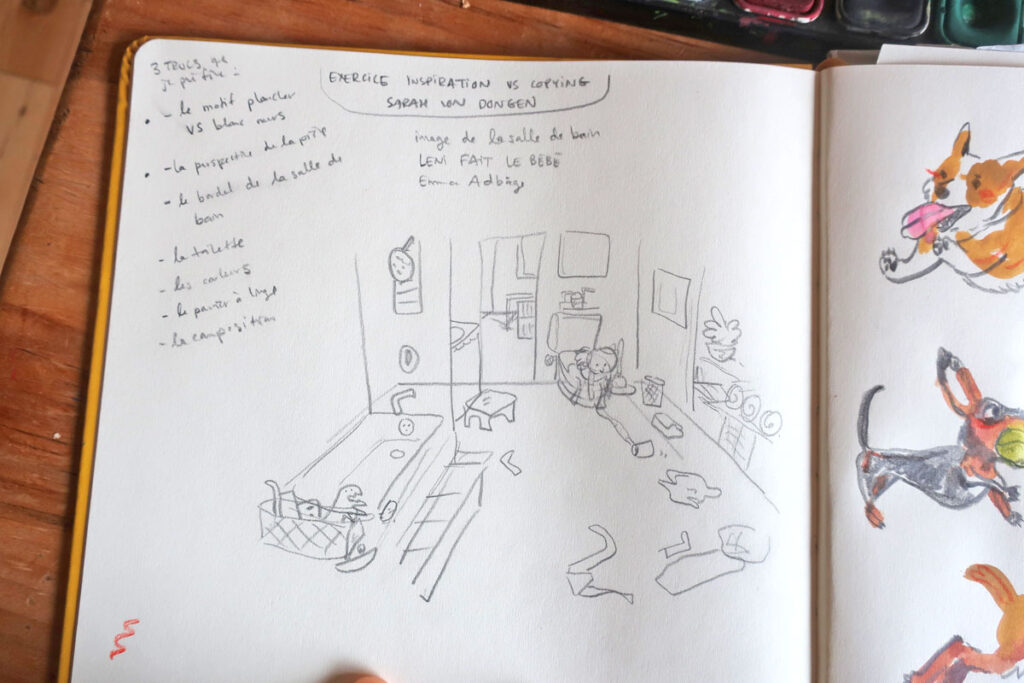 3 TRUCS que
je préfère :
- le motif plancher
VS blanc murs
- la perspective de la pièce
- le bordel de la salle de
bain
- la toilette
- les couleurs
- le panier à linge
- la composition
EXERCICE INSPIRATION VS COPYING
SARAH VON DONGEN
image de la salle de bain
LENI FAIT LE BÉBÉ
Emma Adbåge